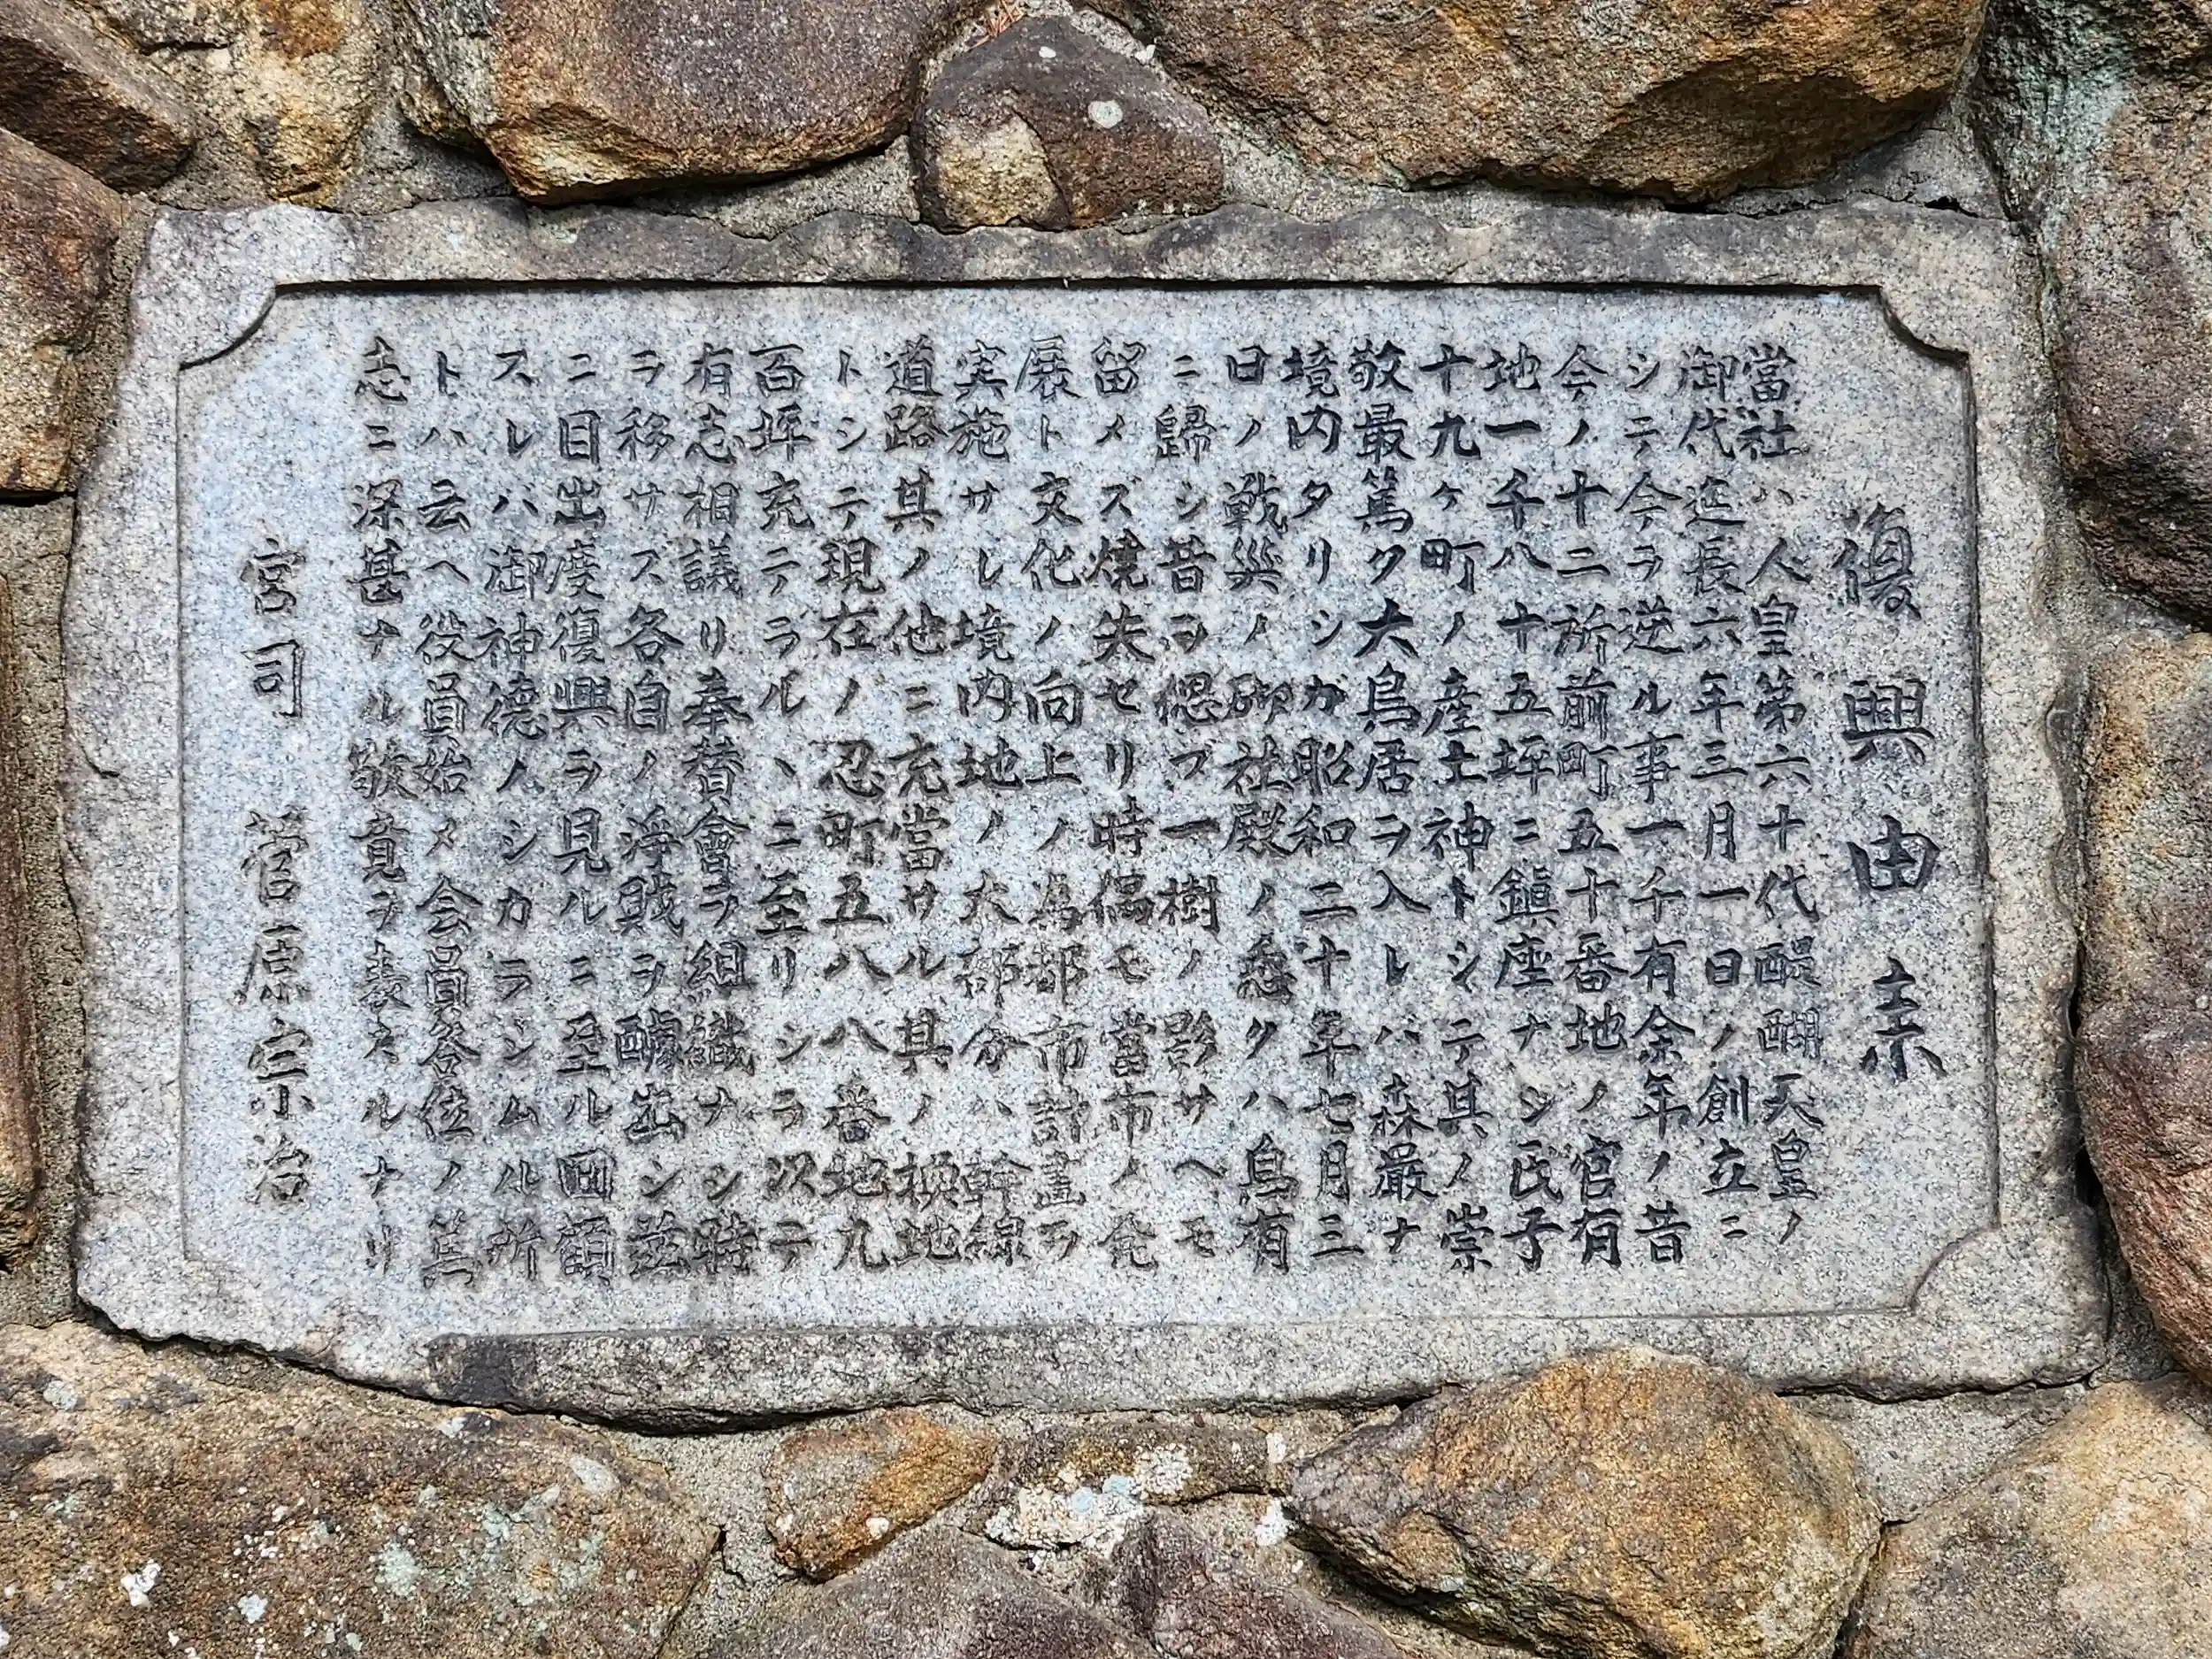 復興由来
當社ハ人皇第六十代醍醐天皇ノ
御代延長六年三月一日ノ創立ニ
シテ今ヲ逆ル事一千有余年ノ昔
今ノ十二所前町五十番地ノ官有
地一千八十五坪ニ鎮座ナシ氏子
十九ヶ町ノ産土神トシテ其ノ崇
敬最篤ク大鳥居ヲ入レバ森厳ナ
境内タリシガ昭和二十年七月三
日ノ戦災ノ砌社殿ノ悉クハ烏有
ニ歸シ昔ヲ偲ブ一樹ノ影サヘモ
留メズ焼失セリ時偶モ當市ノ発
展ト文化ノ向上ノ為都市計畫ヲ
実施サレ境内地ノ大部分ハ幹線
道路其ノ他ニ充當サル其ノ換地
トシテ現在ノ忍町五八八番地九
百坪充テラルヽニ至リシヲ以テ
有志相議リ奉賛會ヲ組織ナシ時
ヲ移サズ各自ノ浄財ヲ醵出シ茲
ニ目出度復興ヲ見ルニ至ル回顧
スレバ御神徳ノシカラシムル所
トハ云ヘ役員始メ会員各位ノ篤
志ニ深甚ナル敬意ヲ表スルナリ
宮司 菅原宗治